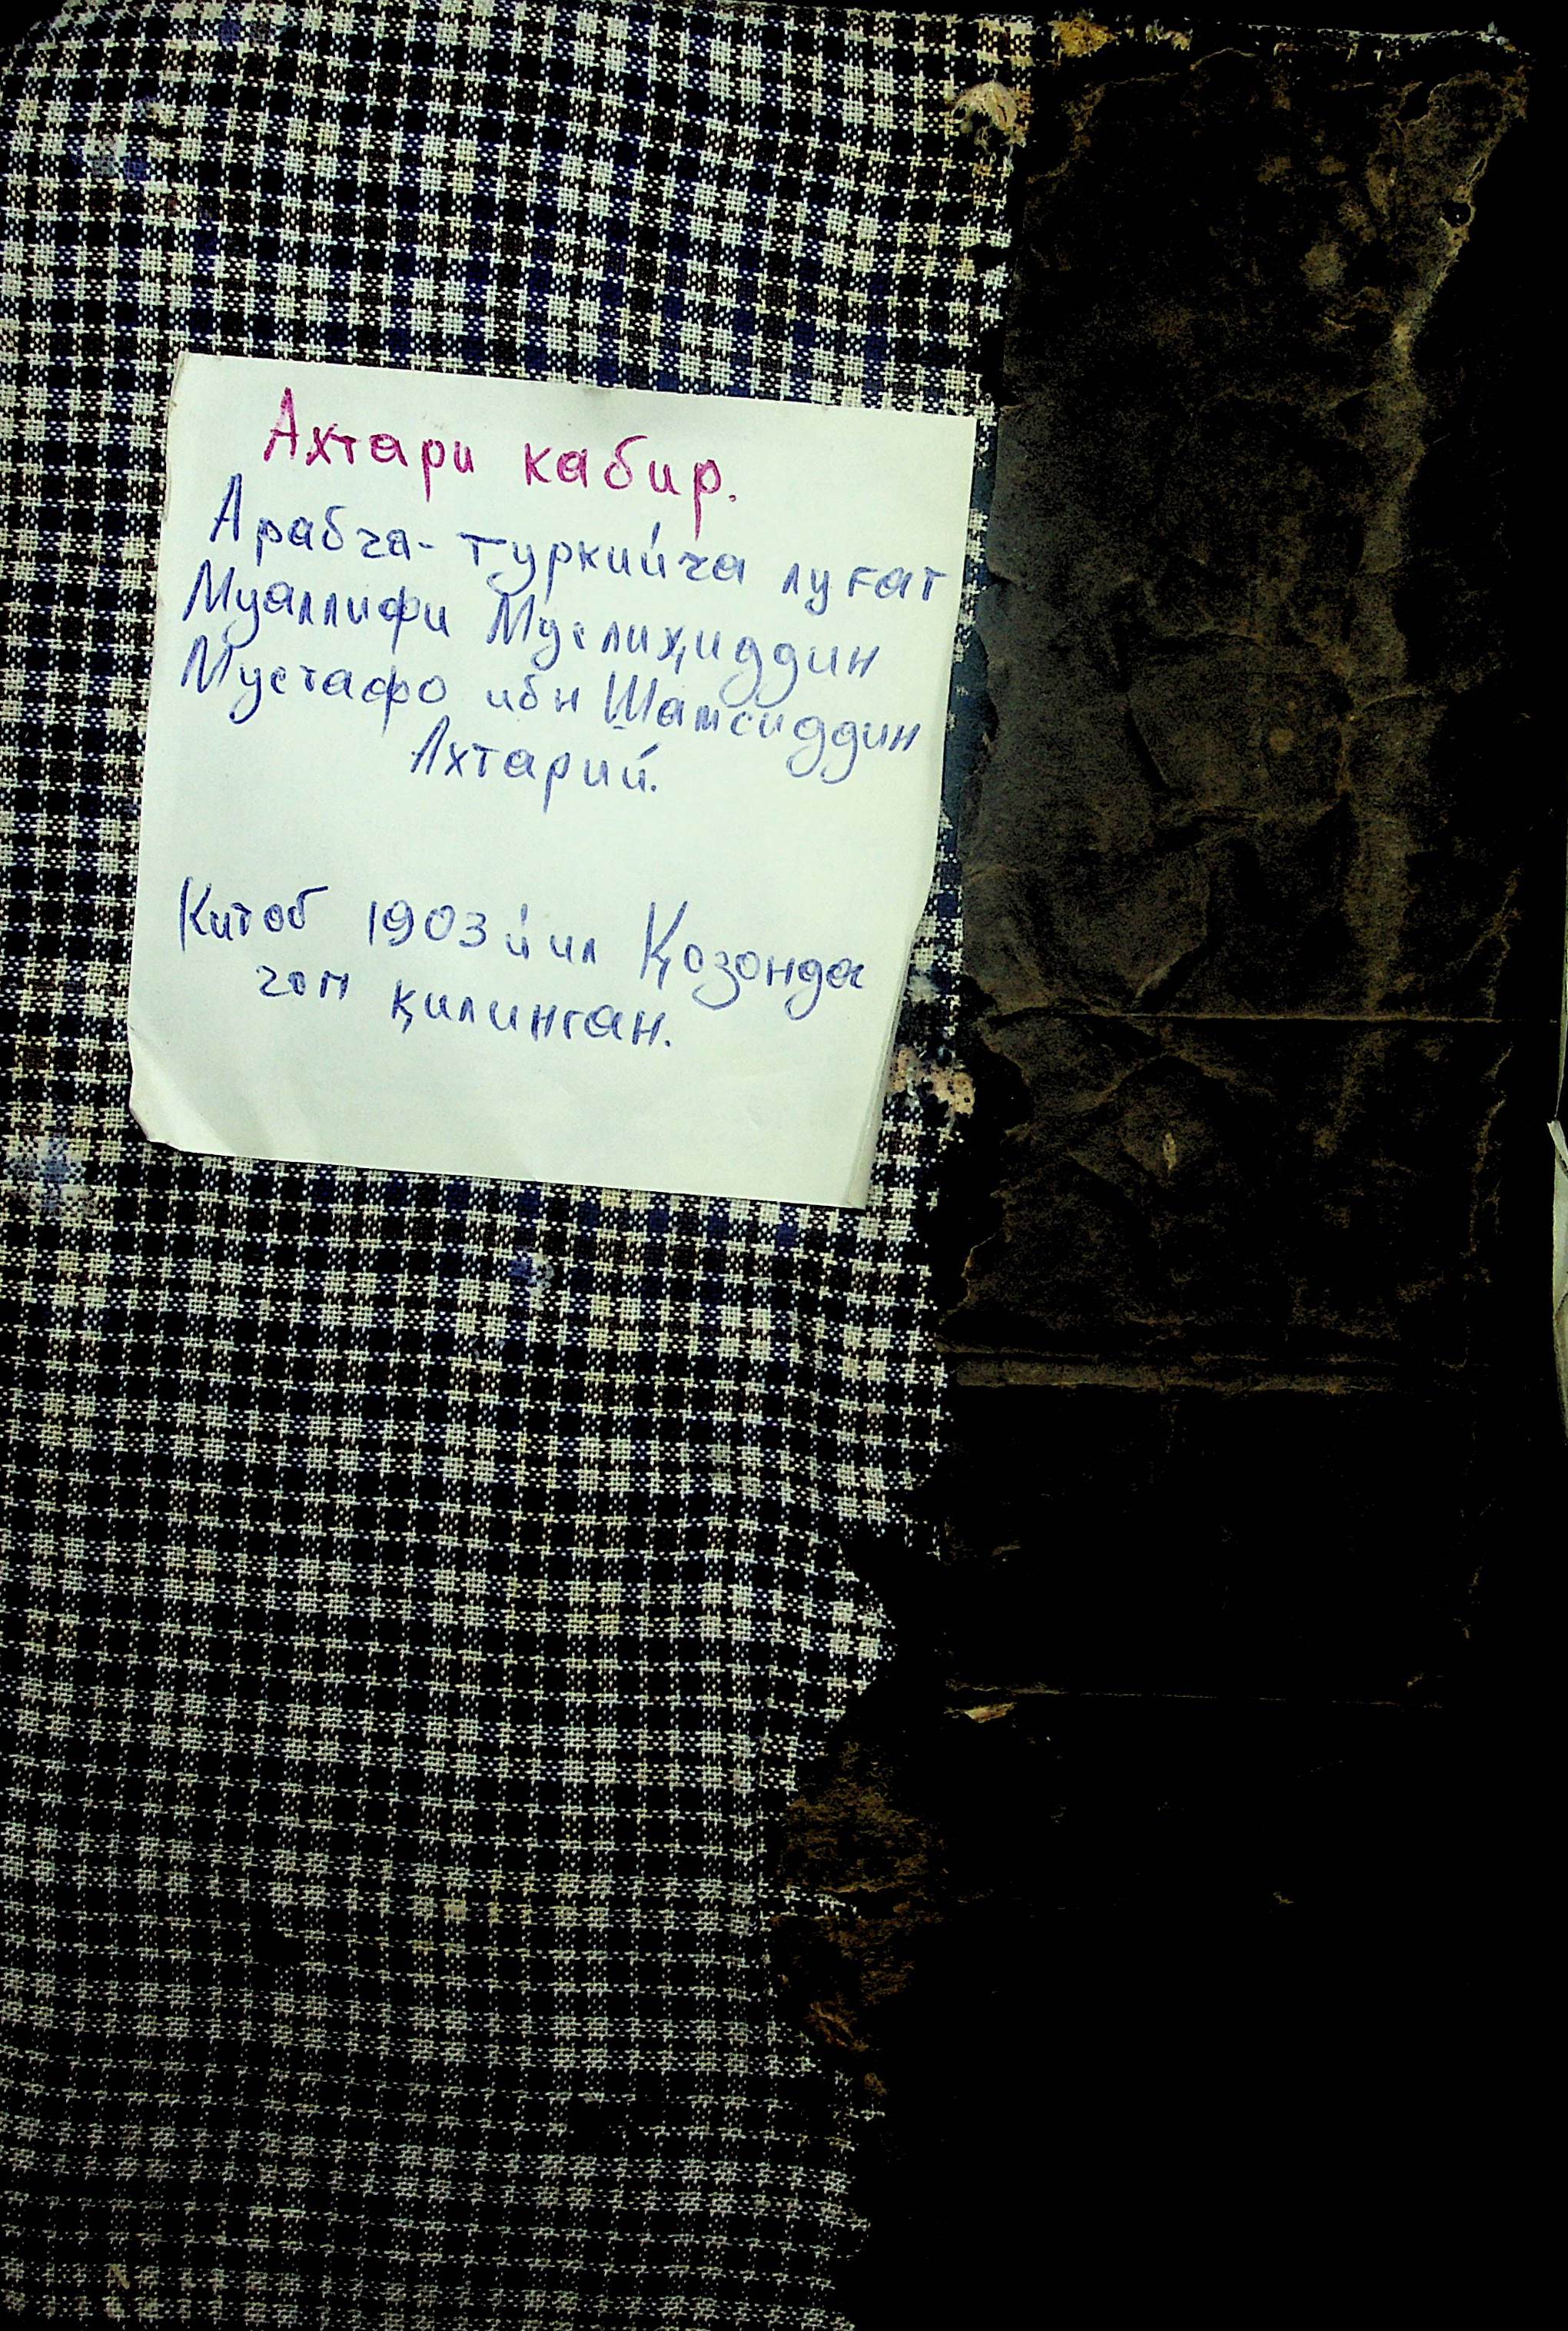 Ахтари кабир.
Арабча-туркийча луғат
Муаллифи Муслиҳиддин
Мустафо ибн Шамсиддин
Ахтарий.
Китоб 1903 йил Қозонда
чоп қилинган.